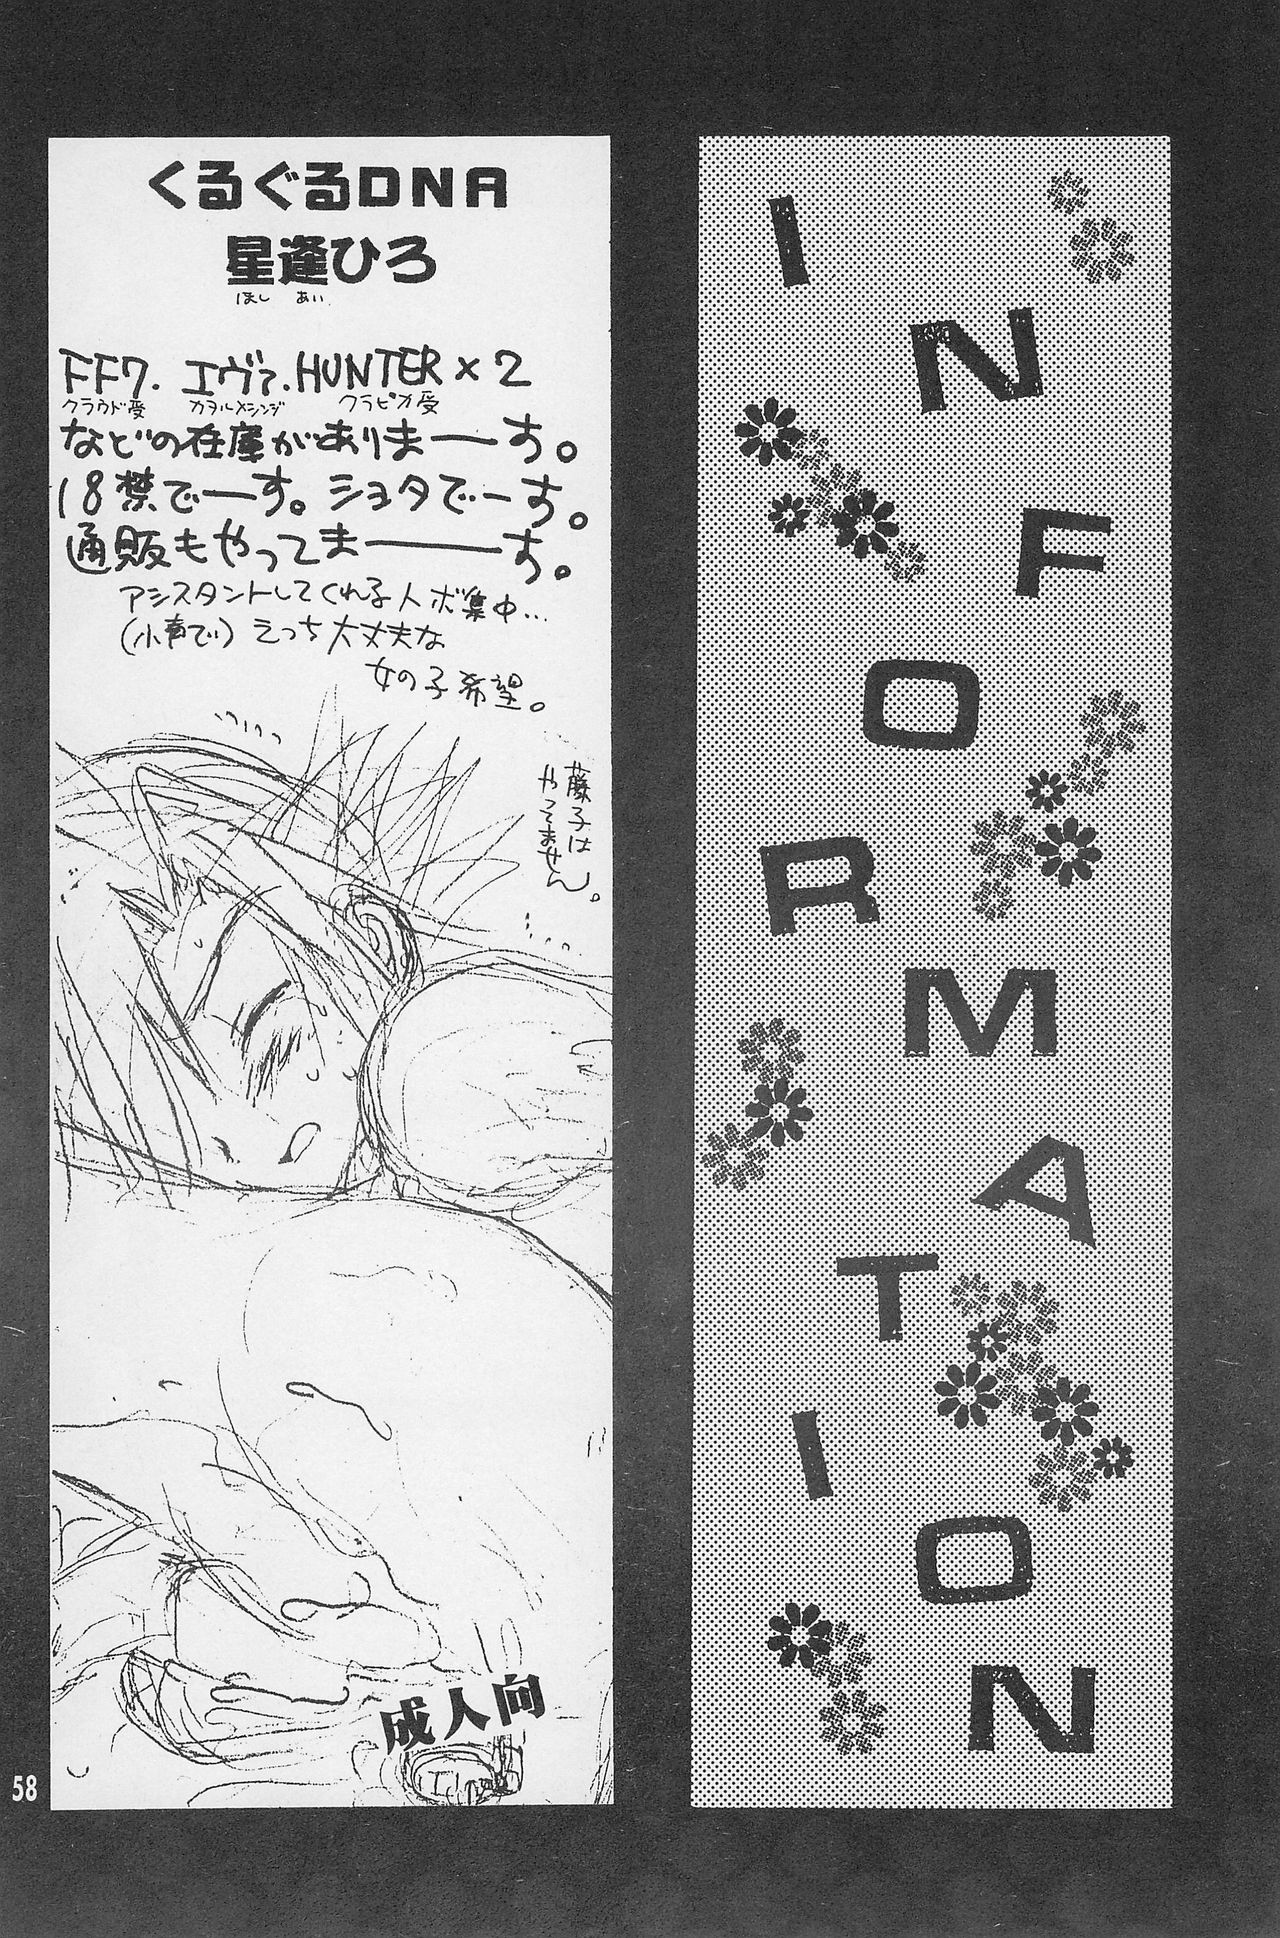 くるぐるDNA
星逢ひろ
ほし あい
FF7. エヴァ. HUNTER×2
クラウド受 カヲル×シンジ クラピカ受
などの在庫がありまーーす。
18禁でーーす。ショタでーす。
通販もやってまーーーす。
アシスタントしてくれる人ボ集中…
(小声で) えっち大丈夫な
女の子希望。
藤子は
やってません。
成人向
INFORMATION
58